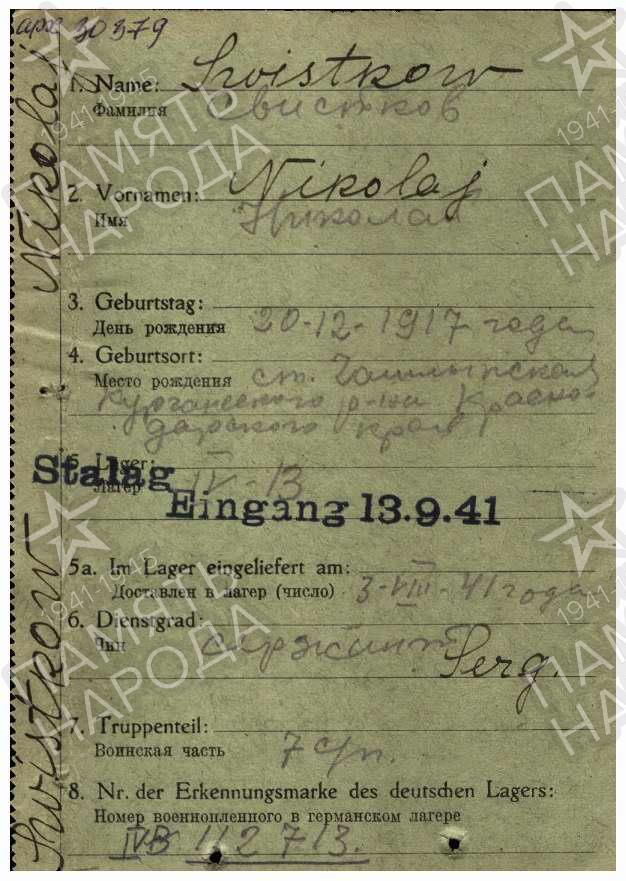 арх 30379
1. Name: Swistkow
Фамилия Свистков
2. Vornamen: Nikolaj
Имя Николай
3. Geburtstag:
День рождения 20-12-1917 года
4. Geburtsort:
Место рождения ст.
Курганского р-на Красно-
дарского края
5. Lager:
Лагер IV-13
Stalag
Eingang 13.9.41
5a. Im Lager eingeliefert am:
Доставлен в лагер (число) 3-VIII-41 года
6. Dienstgrad:
Чин сержант
Serg.
7. Truppenteil:
Воинская часть 7 с/п.
8. Nr. der Erkennungsmarke des deutschen Lagers:
Номер военнопленного в германском лагере
IVB 112713.
Swistkow Nikolaj
ПАМЯТЬ
НАРОДА
1941-1945